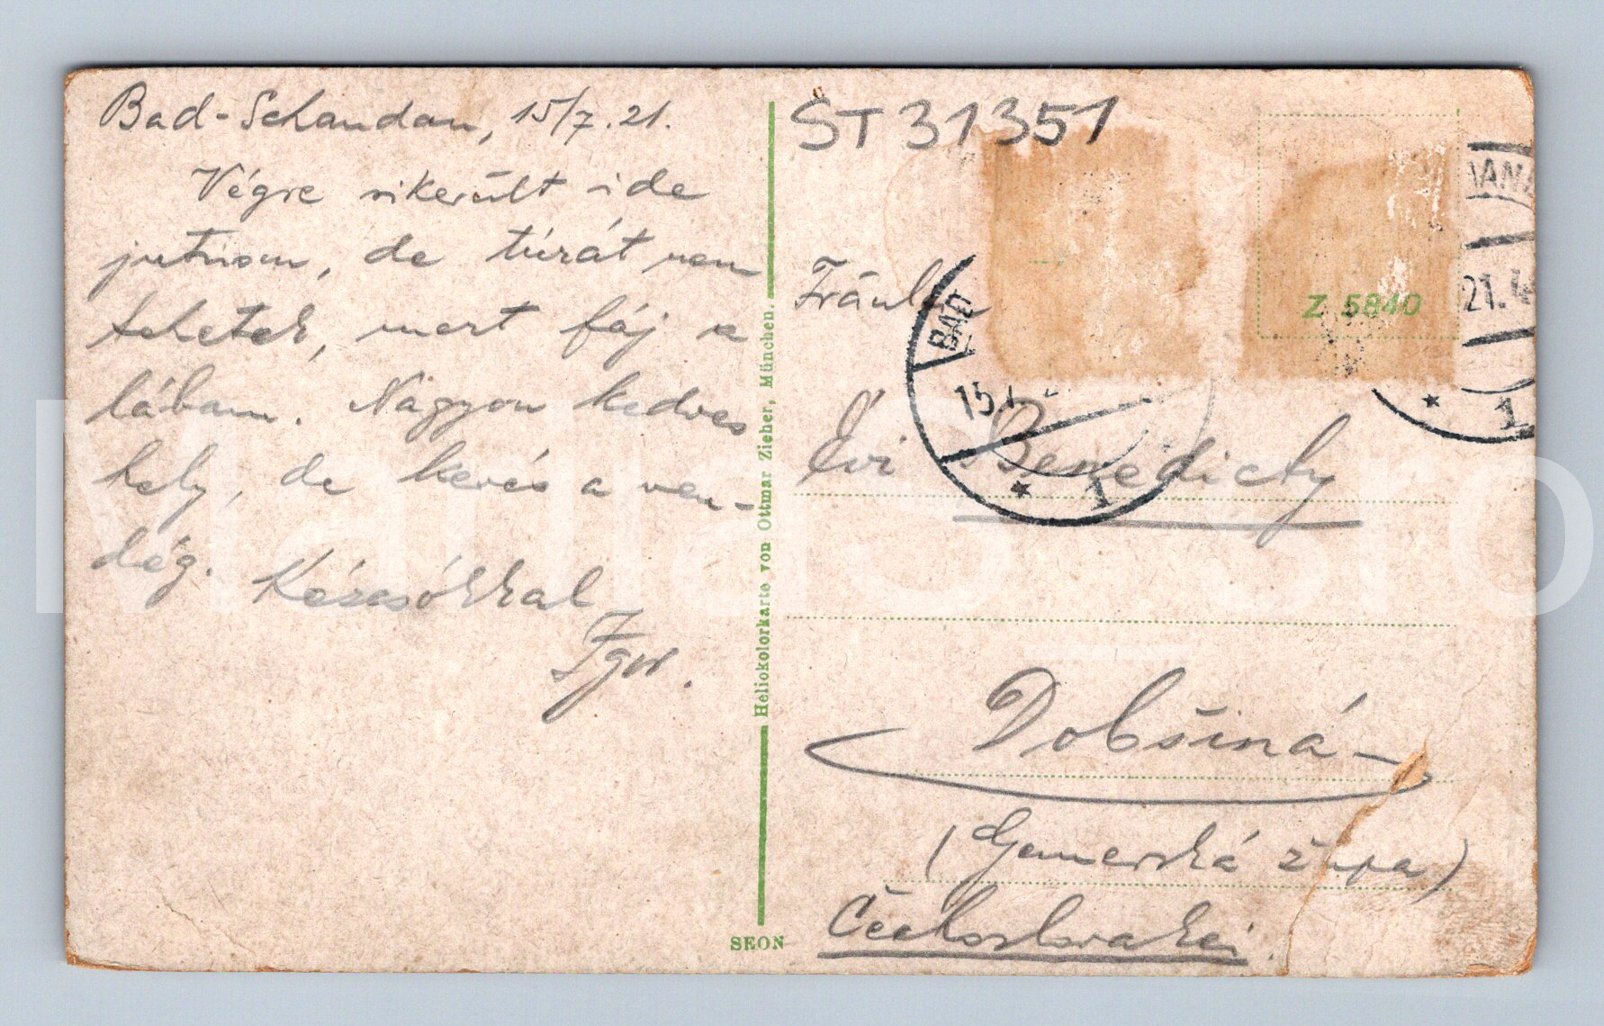 Bad-Schandau, 15/7.21.
Végre sikerült ide
jutnom, de túrát nem
tehetek, mert fáj a
lábam. Nagyon kedves
hely, de kevés a ven-
dég. Kézcsókkal
Igor.
Heliokolorkarte von Ottmar Zieher, München.
SEON
ST 31351
Z 5840
BAD
15.7
21.4
* 1
* 1
Fräulein
Évi Benedicty
Dobšiná
(Gemerská župa)
Čechoslovakei